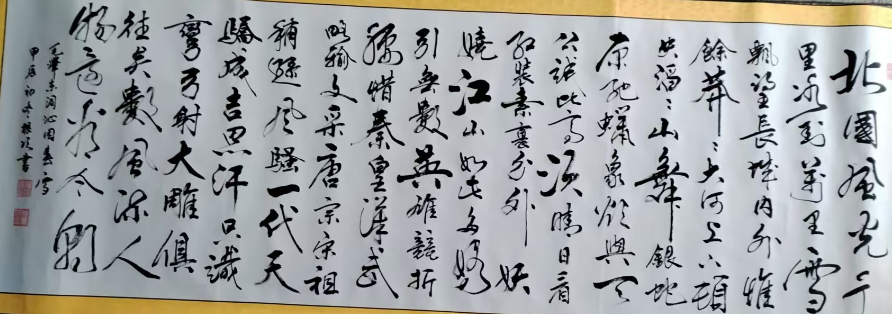 北國風光千
里冰封萬里雪
飄望長城内外惟
餘莽〻大河上下頓
失滔〻山舞銀蛇
原馳蠟象欲與天
公試比高須晴日看
紅裝素裹分外妖
嬈江山如此多嬌
引無數英雄競折
腰惜秦皇漢武
略輸文采唐宗宋祖
稍遜風騷一代天
驕成吉思汗只識
彎弓射大雕俱
往矣數風流人
物還看今朝
毛澤東詞沁園春雪
甲辰初冬根書